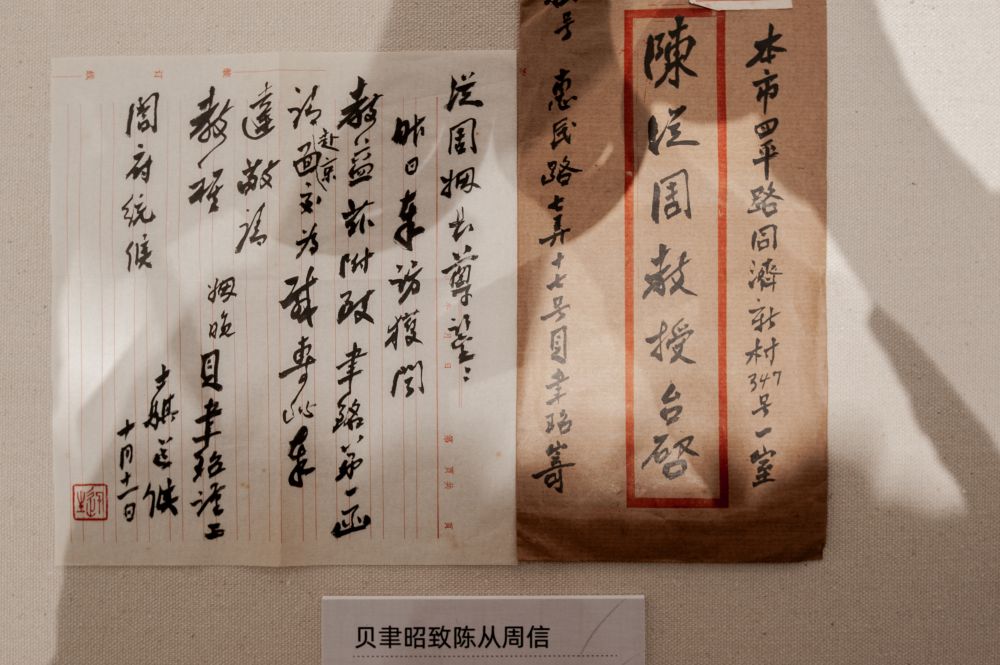 本市四平路同濟新村347号一室
陳從周教授台啓
惠民路七弄十七号貝聿昭寄
從周姻長尊鑒：
昨日奉訪獲聞
教益茲附致聿銘弟一函
请赴京面交为感專此奉
達敬請
教祺
姻晚貝聿昭謹上
閤府統候
候
十月十一日
月 日 第 页 共 页
贝聿昭致陈从周信